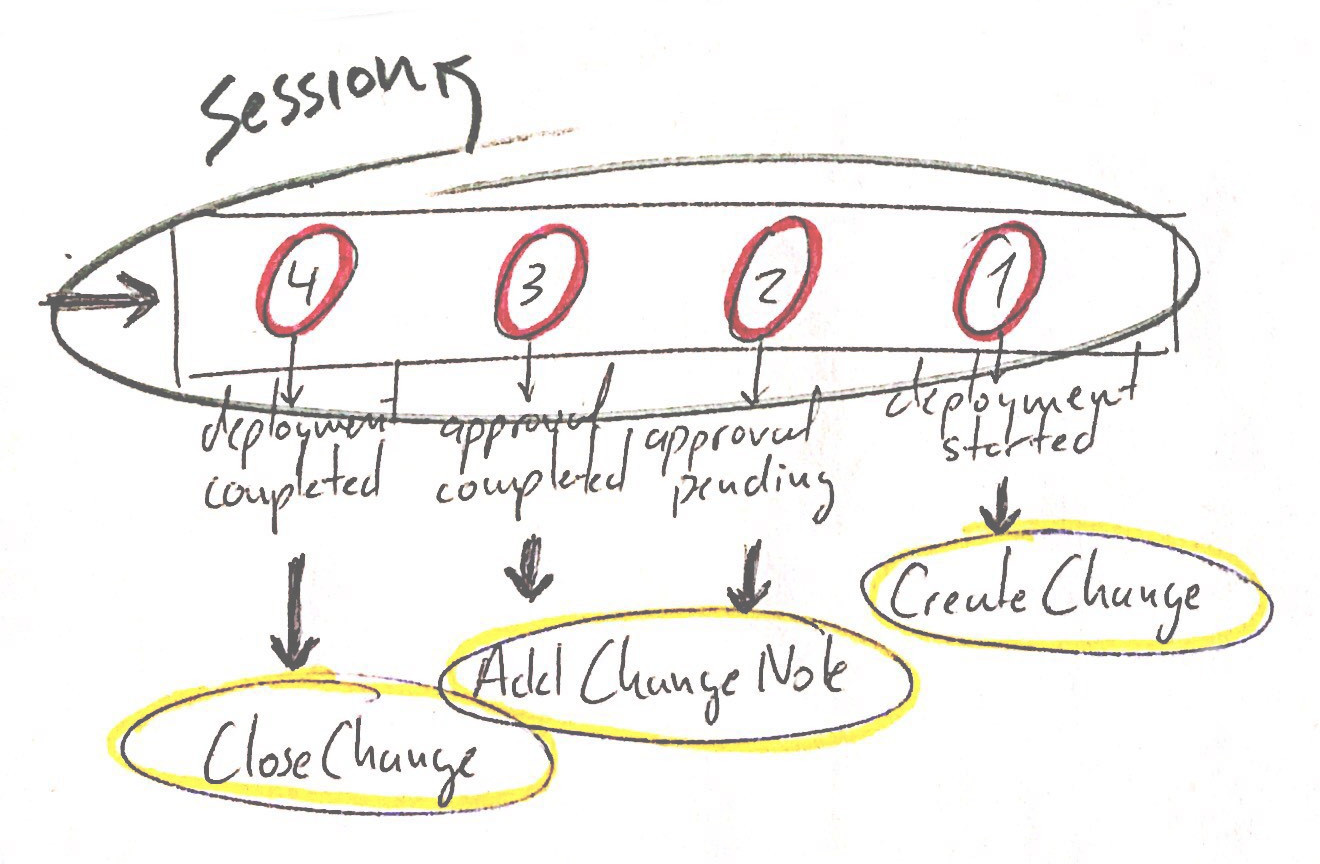 Session
4
3
2
1
deployment
completed
approval
completed
approval
pending
deployment
started
Create Change
Add Change Note
Close Change